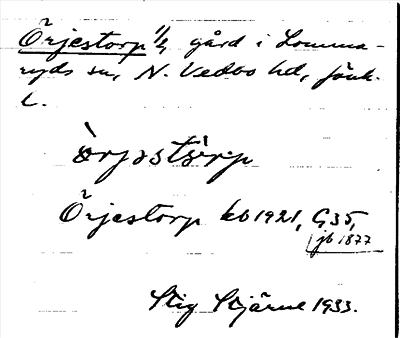 Örjestorp 1/2, gård i Lomma-
ryds sn, N. Vedbo hd, Jönk.
L.
òrjəstòrp
Örjestorp kb 1921, G35,
jb 1877
Stig Stjärne 1933.